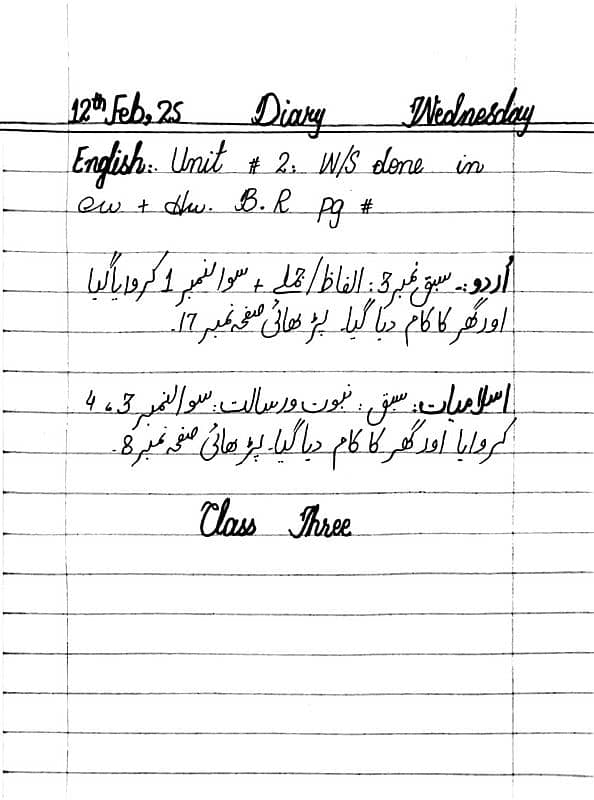 12th Feb, 25 Diary Wednesday
English:. Unit # 2: W/S done in
cw + Hw. B.R pg #
اُردو:۔ سبق نمبر 3: الفاظ/جملے + سوالنمبر 1 کروایا گیا
اور گھر کا کام دیا گیا۔ پڑھائی صفحہ نمبر 17۔
اسلامیات: سبق: نبوت و رسالت: سوالنمبر 3، 4
کروایا اور گھر کا کام دیا گیا۔ پڑھائی صفحہ نمبر 8۔
Class Three